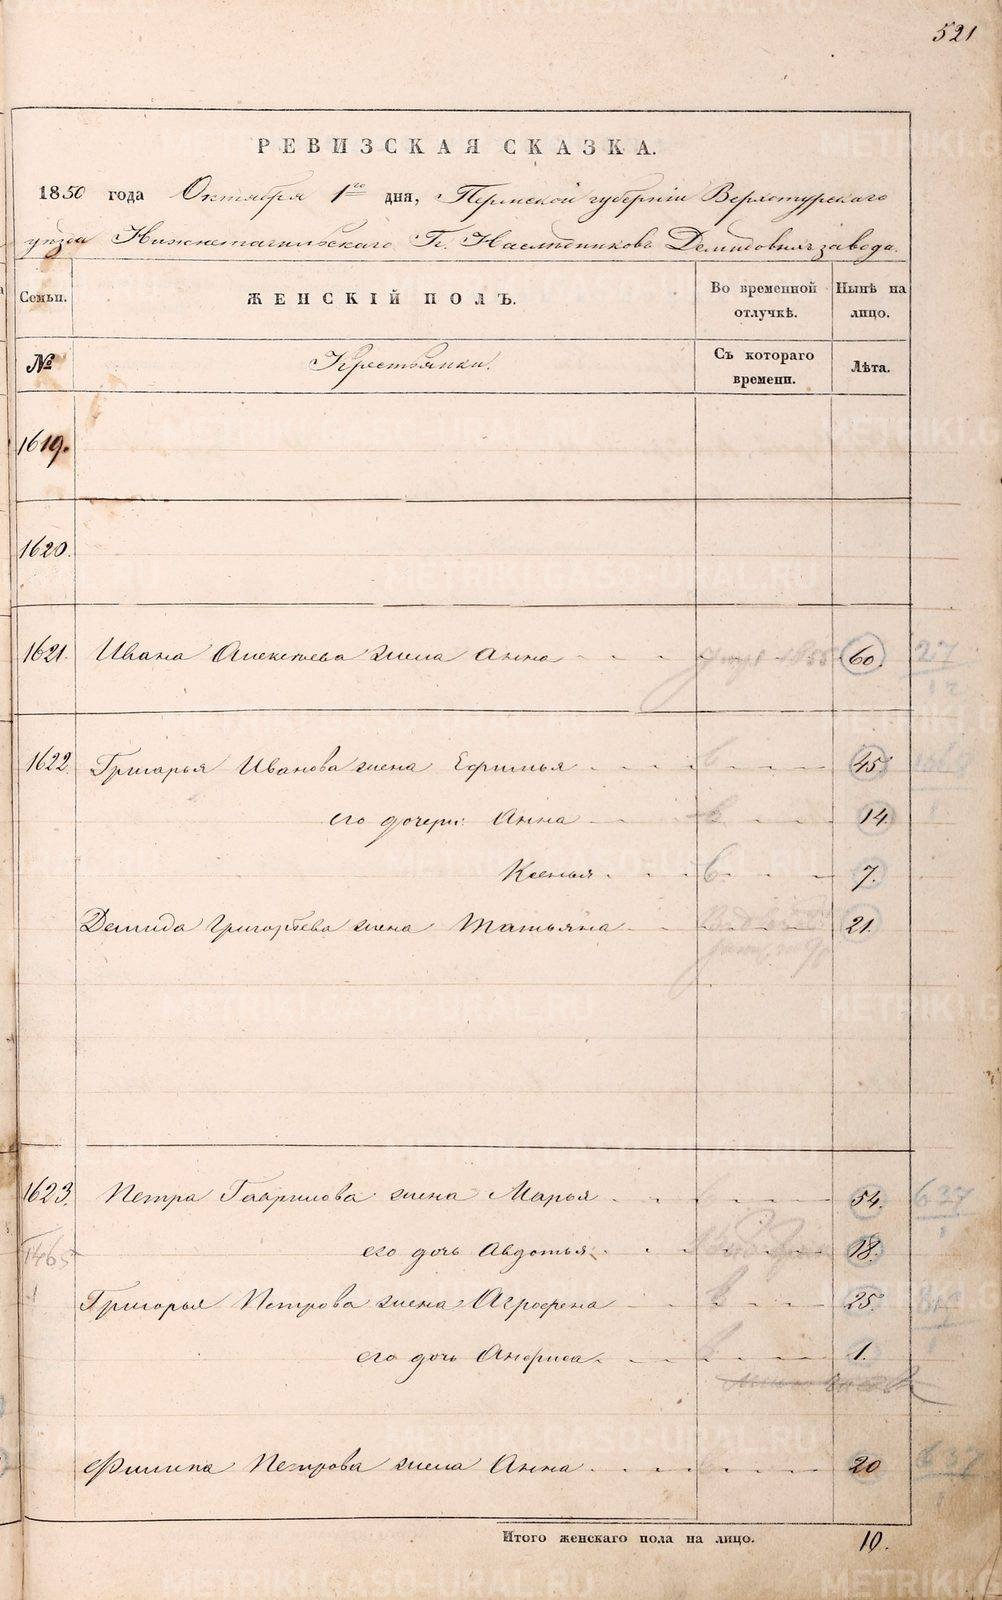 521
РЕВИЗСКАЯ СКАЗКА.
1850 года Октября 1го дня, Пермской губерніи Верхотурскаго
уѣзда Нижнетагильскаго Гг. Наслѣдниковъ Демидовыхъ завода.
Семьи. ЖЕНСКІЙ ПОЛЪ. Во временной отлучкѣ. Нынѣ на лицо.
№ Крестьянки. Съ котораго времени. Лѣта.
1619.
1620.
1621. Ивана Алексѣева жена Анна 1855 60. 27
12
1622. Григорья Иванова жена Ефимья 45.
его дочери: Анна 14.
Ксенья 7.
Демида Григорьева жена Татьяна 21.
1623. Петра Гаврилова жена Марья 54. 637
1465 его дочь Авдотья 18.
Григорья Петрова жена Агрофена 25.
его дочь Анфиса 1.
Филипа Петрова жена Анна 20 637
Итого женскаго пола на лицо. 10.
METRIKI.GASO-URAL.RU